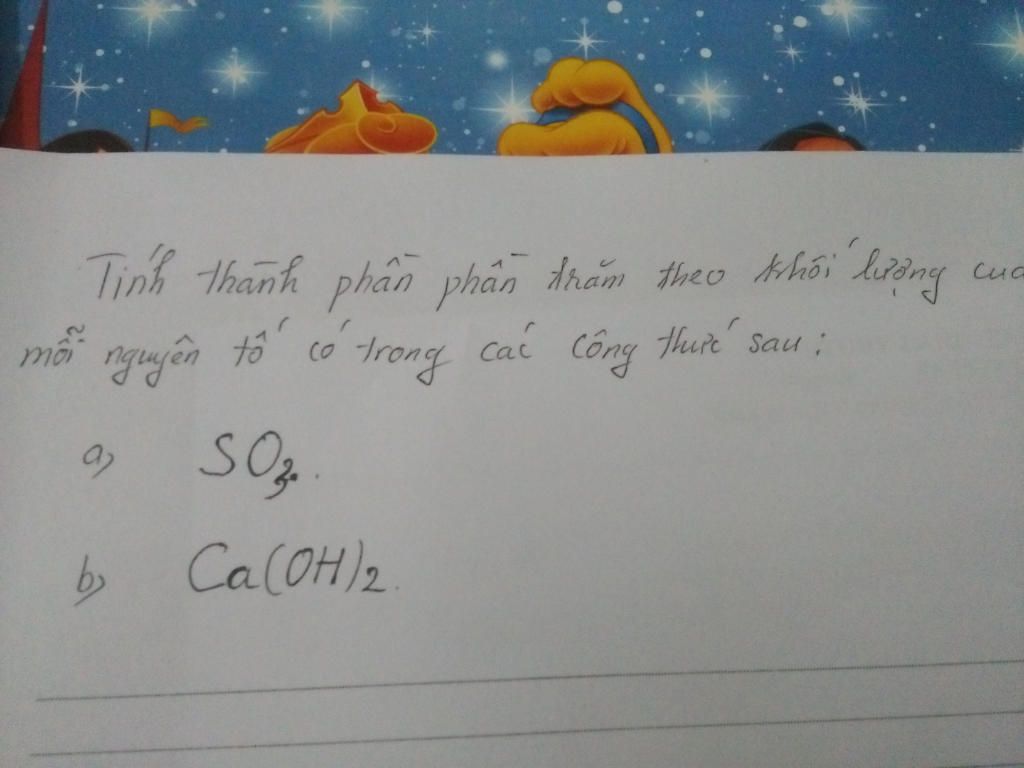 Tính thành phần phần trăm theo khối lượng của
mỗi nguyên tố có trong các công thức sau:
a) SO3.
b) Ca(OH)2.